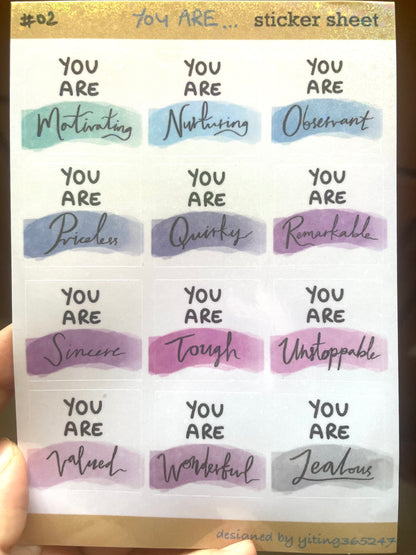 #02 YOU ARE... sticker sheet
YOU YOU YOU
ARE ARE ARE
Motivating Nurturing Observant
YOU YOU YOU
ARE ARE ARE
Priceless Quirky Remarkable
YOU YOU YOU
ARE ARE ARE
Sincere Tough Unstoppable
YOU YOU YOU
ARE ARE ARE
Valued Wonderful Zealous
designed by yiting365247